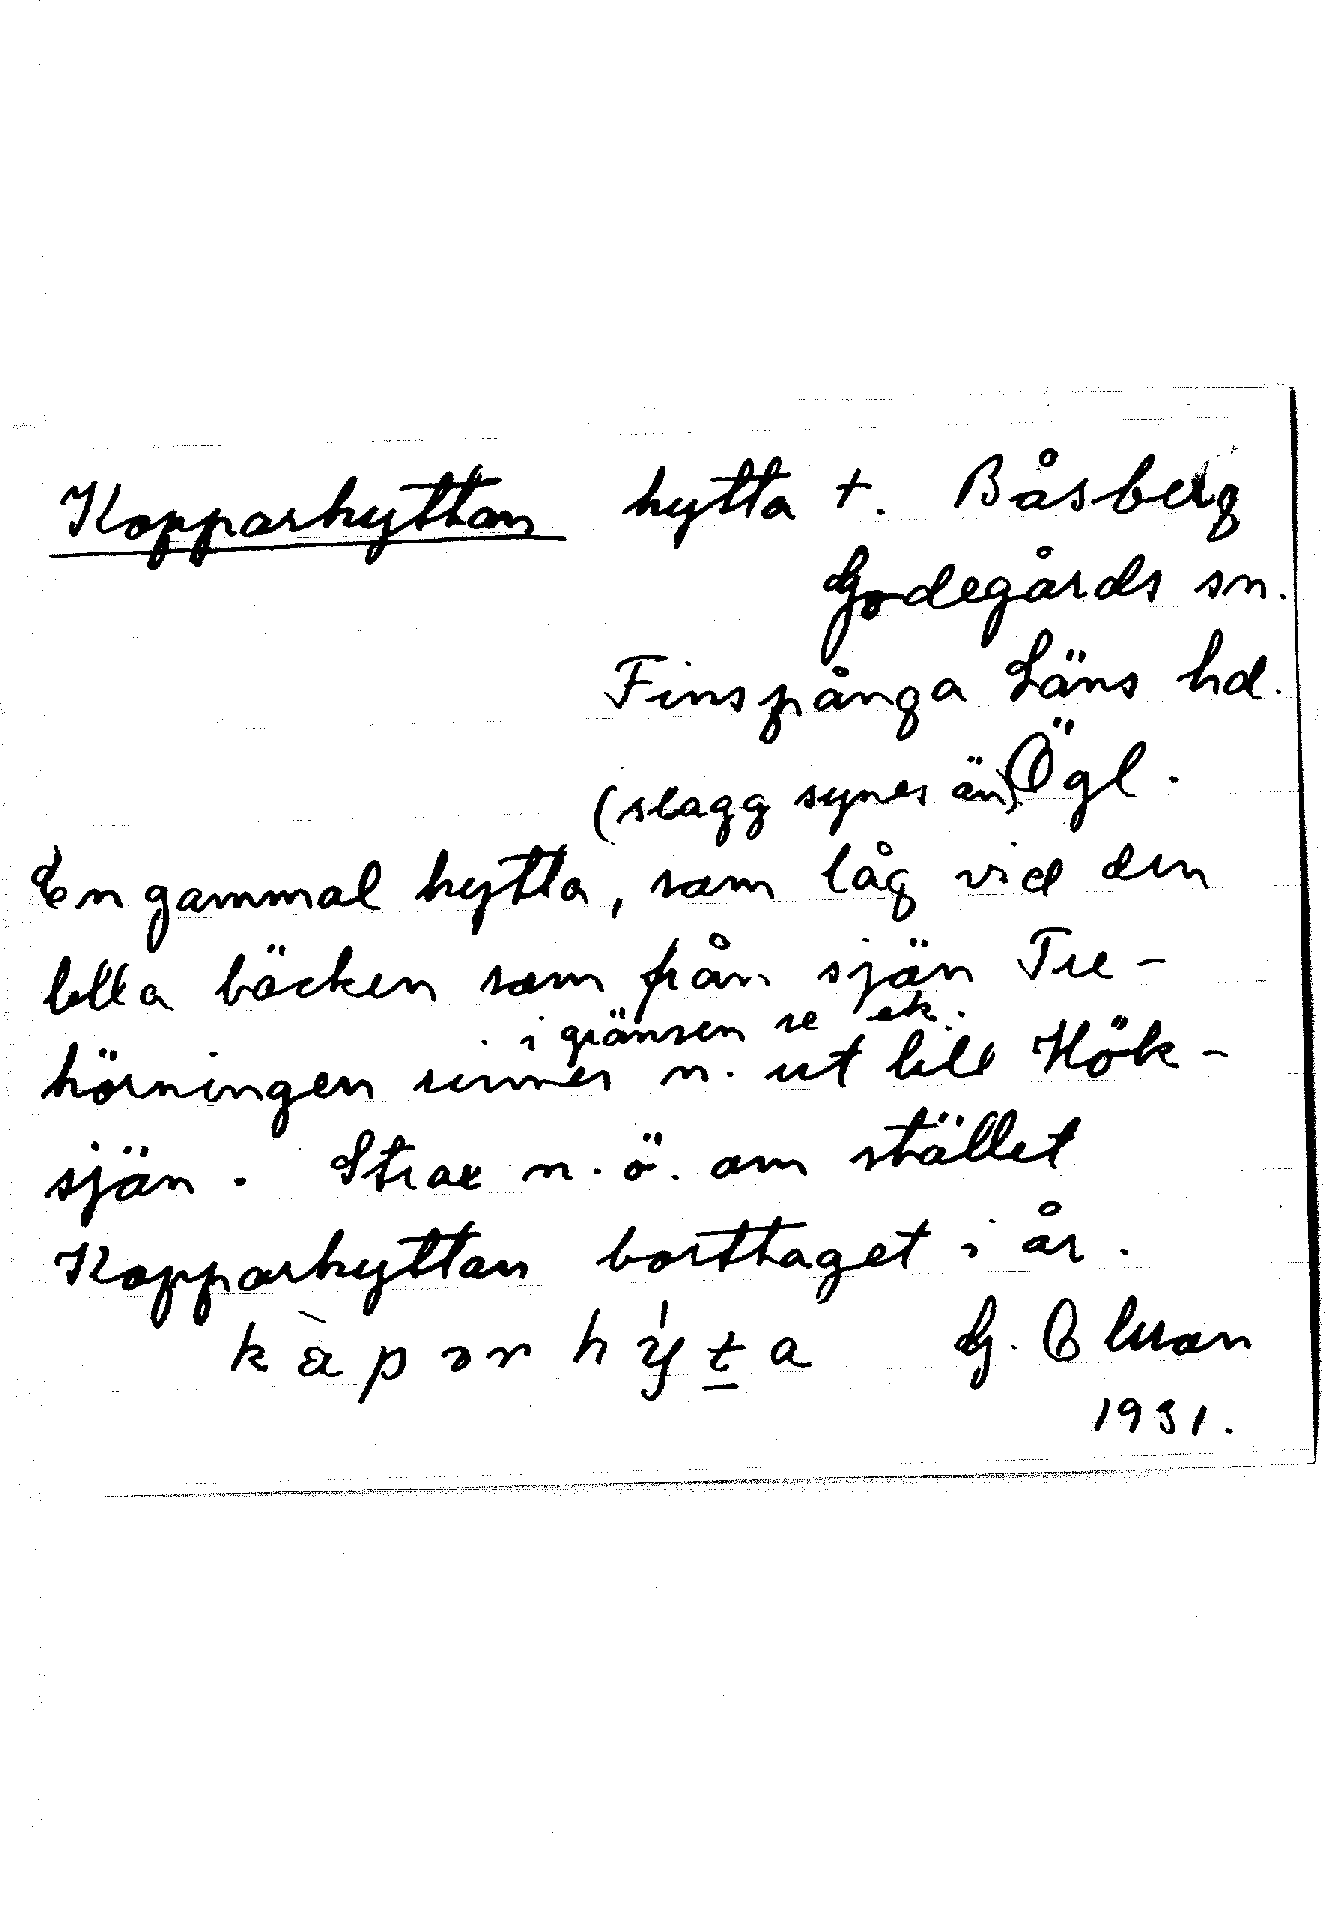 Kopparhyttan hytta t. Båsberg
Godegårds sn.
Finspånga Läns hd.
(slagg synes än) Ögl.
En gammal hytta, som låg vid den
lilla bäcken som från sjön Tre-
i gränsen se ek.
hörningen rinner n. ut till Hök-
sjön. Strax n.ö. om stället
Kopparhyttan borttaget i år.
kàpɔr hýṯa G.
1931.